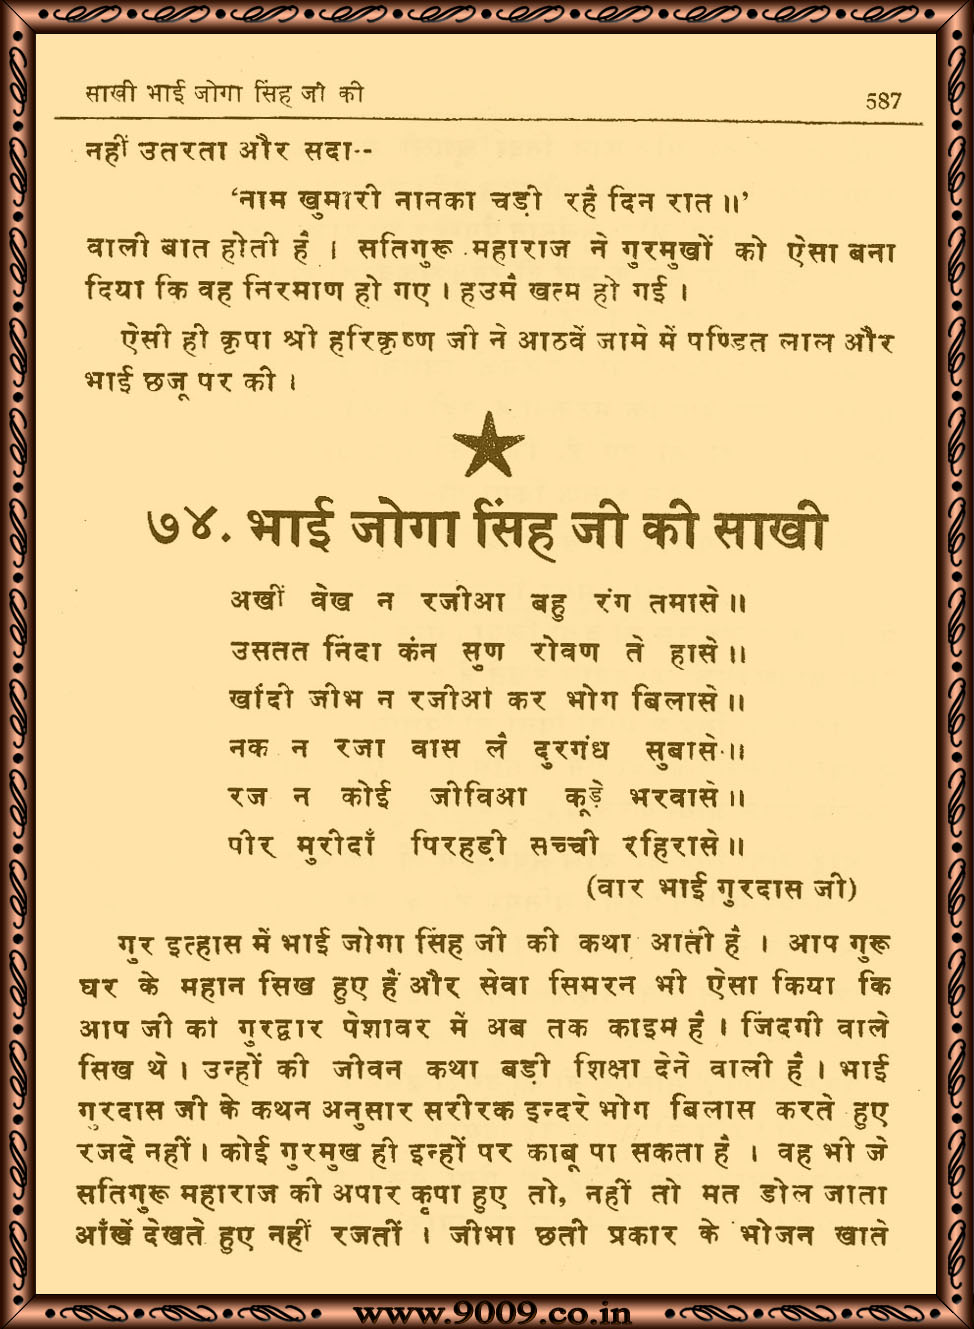 साखी भाई जोगा सिंह जी की
587
नहीं उतरता और सदा--
‘नाम खुमारी नानका चड़ी रहै दिन रात ॥’
वाली बात होती है । सतिगुरू महाराज ने गुरमुखों को ऐसा बना
दिया कि वह निरमाण हो गए । हउमै खत्म हो गई ।
ऐसी ही कृपा श्री हरिकृष्ण जी ने आठवें जामे में पण्डित लाल और
भाई छजू पर की ।
७४. भाई जोगा सिंह जी की साखी
अखीं वेख न रजीआ बहु रंग तमासे ॥
उसतत निंदा कंन सुण रोवण ते हासे ॥
खांदी जीभ न रजीआ कर भोग बिलासे ॥
नक न रजा वास लै दुरगंध सुबासे ॥
रज न कोई जीविआ कूड़े भरवासे ॥
पीर मुरीदाँ पिरहड़ी सच्ची रहिरासे ॥
(वार भाई गुरदास जी)
गुर इत्हास में भाई जोगा सिंह जी की कथा आती है । आप गुरू
घर के महान सिख हुए हैं और सेवा सिमरन भी ऐसा किया कि
आप जी का गुरद्वार पेशावर में अब तक काइम है । जिंदगी वाले
सिख थे । उन्हों की जीवन कथा बड़ी शिक्षा देने वाली है । भाई
गुरदास जी के कथन अनुसार सरीरक इन्दरे भोग बिलास करते हुए
रजदे नहीं । कोई गुरमुख ही इन्हों पर काबू पा सकता है । वह भी जे
सतिगुरू महाराज की अपार कृपा हुए तो, नहीं तो मत डोल जाता
आँखें देखते हुए नहीं रजतीं । जीभा छती प्रकार के भोजन खाते
www.9009.co.in